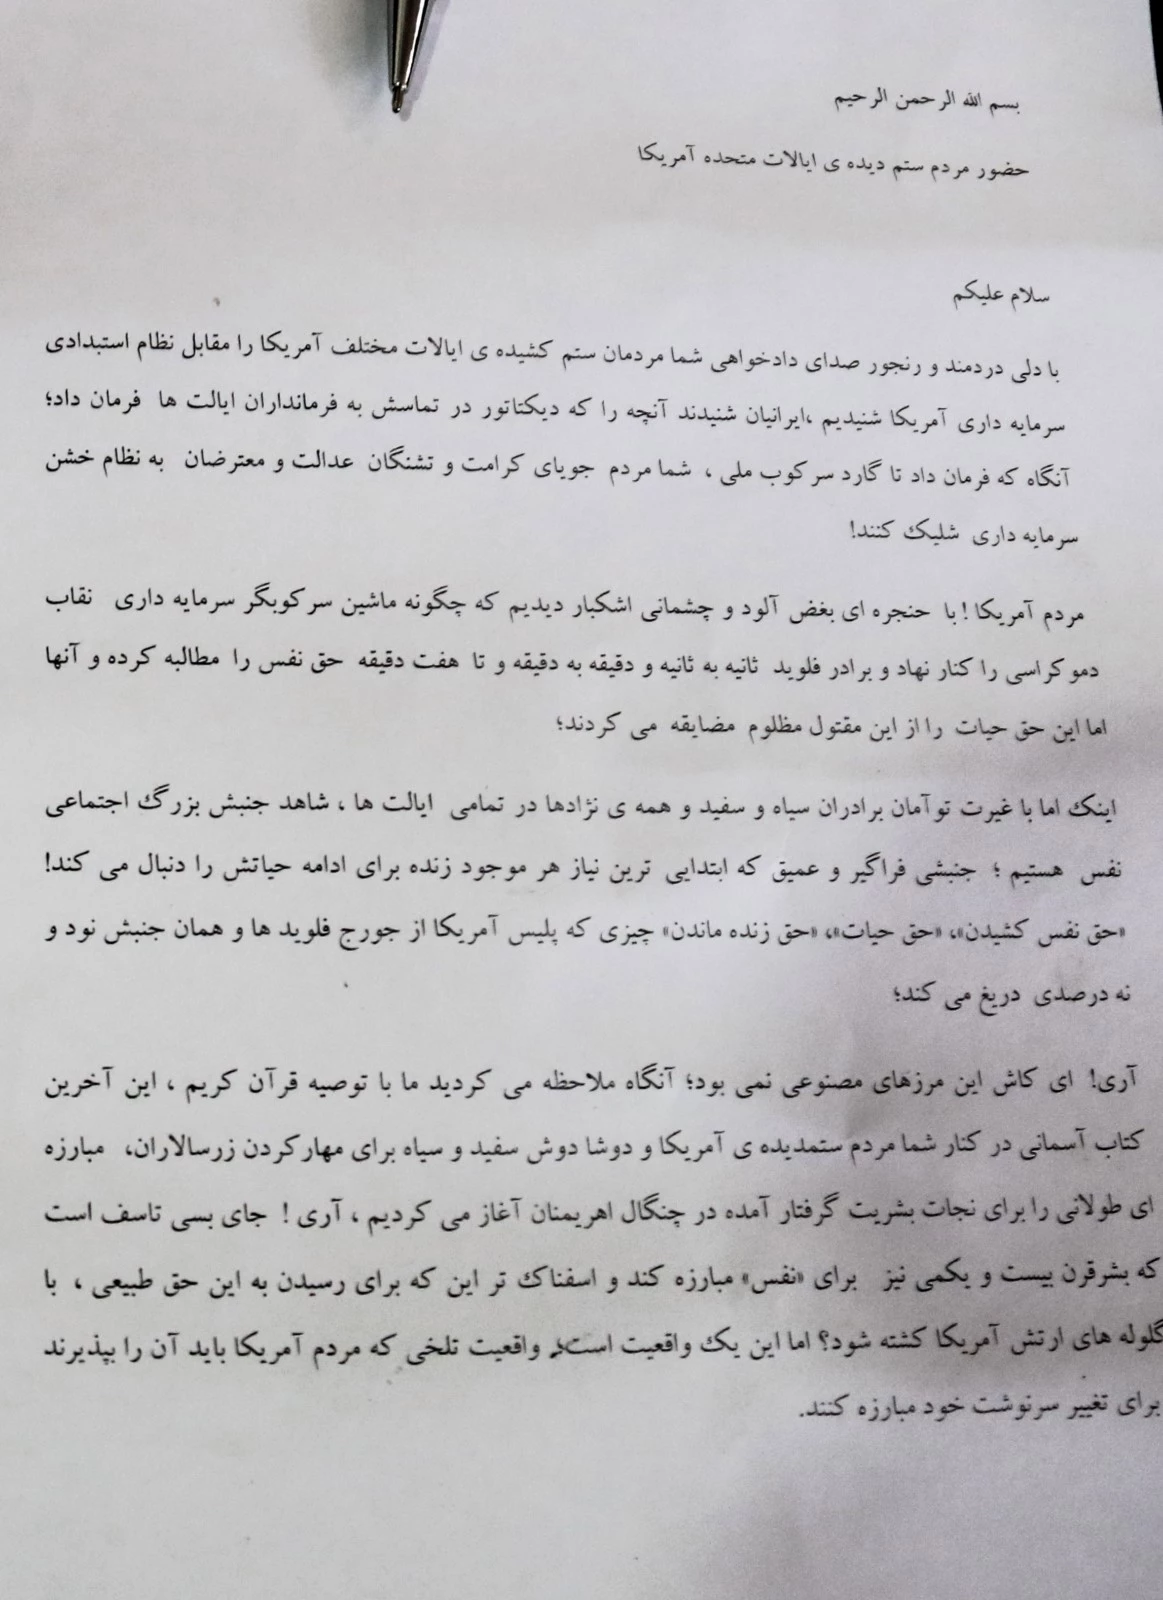 بسم الله الرحمن الرحیم
حضور مردم ستم دیده ی ایالات متحده آمریکا
سلام علیکم
با دلی دردمند و رنجور صدای دادخواهی شما مردمان ستم کشیده ی ایالات مختلف آمریکا را مقابل نظام استبدادی
سرمایه داری آمریکا شنیدیم ،ایرانیان شنیدند آنچه را که دیکتاتور در تماسش به فرمانداران ایالت ها فرمان داد؛
آنگاه که فرمان داد تا گارد سرکوب ملی ، شما مردم جویای کرامت و تشنگان عدالت و معترضان به نظام خشن
سرمایه داری شلیک کنند!
مردم آمریکا ! با حنجره ای بغض آلود و چشمانی اشکبار دیدیم که چگونه ماشین سرکوبگر سرمایه داری نقاب
دموکراسی را کنار نهاد و برادر فلوید ثانیه به ثانیه و دقیقه به دقیقه و تا هفت دقیقه حق نفس را مطالبه کرده و آنها
اما این حق حیات را از این مقتول مظلوم مضایقه می کردند؛
اینک اما با غیرت توآمان برادران سیاه و سفید و همه ی نژادها در تمامی ایالت ها ، شاهد جنبش بزرگ اجتماعی
نفس هستیم ؛ جنبشی فراگیر و عمیق که ابتدایی ترین نیاز هر موجود زنده برای ادامه حیاتش را دنبال می کند!
«حق نفس کشیدن»، «حق حیات»، «حق زنده ماندن» چیزی که پلیس آمریکا از جورج فلوید ها و همان جنبش نود و
نه درصدی دریغ می کند؛
آری! ای کاش این مرزهای مصنوعی نمی بود؛ آنگاه ملاحظه می کردید ما با توصیه قرآن کریم ، این آخرین
کتاب آسمانی در کنار شما مردم ستمدیده ی آمریکا و دوشا دوش سفید و سیاه برای مهارکردن زرسالاران، مبارزه
ای طولانی را برای نجات بشریت گرفتار آمده در چنگال اهریمنان آغاز می کردیم ، آری ! جای بسی تاسف است
که بشرقرن بیست و یکمی نیز برای «نفس» مبارزه کند و اسفناک تر این که برای رسیدن به این حق طبیعی ، با
گلوله های ارتش آمریکا کشته شود؟ اما این یک واقعیت است؛ واقعیت تلخی که مردم آمریکا باید آن را بپذیرند
برای تغییر سرنوشت خود مبارزه کنند.